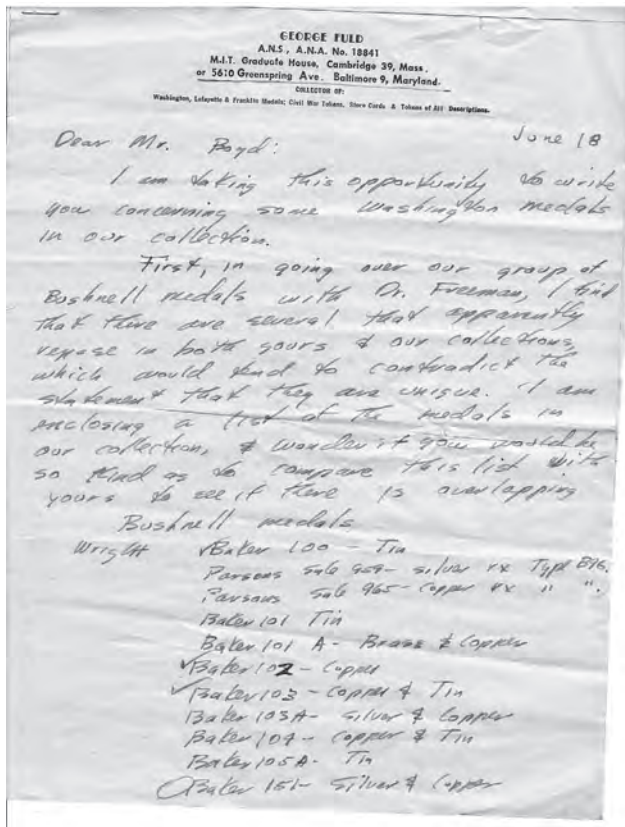 GEORGE FULD
A.N.S., A.N.A. No. 18841
M.I.T. Graduate House, Cambridge 39, Mass.
or 5610 Greenspring Ave. Baltimore 9, Maryland.
COLLECTOR OF:
Washington, Lafayette & Franklin Medals; Civil War Tokens, Store Cards & Tokens of All Descriptions.
June 18
Dear Mr. Boyd:
I am taking this opportunity to write
you concerning some Washington medals
in our collection.
First, in going over our group of
Bushnell medals with Dr. Freeman, I find
that there are several that apparently
repose in both yours & our collections,
which would tend to contradict the
statement that they are unique. I am
enclosing a list of the medals in
our collection, & wonder if you would be
so kind as to compare this list with
yours to see if there is overlapping
Bushnell medals
Wright ✓Baker 100 - Tin
Parsons Sale 959 - silver rx Type B96.
Parsons Sale 965 - Copper rx " ".
Baker 101 Tin
Baker 101 A - Brass & Copper
✓Baker 102 - Copper
✓Baker 103 - Copper & Tin
Baker 103A - Silver & Copper
Baker 104 - Copper & Tin
Baker 105A - Tin
Baker 151 - Silver & Copper